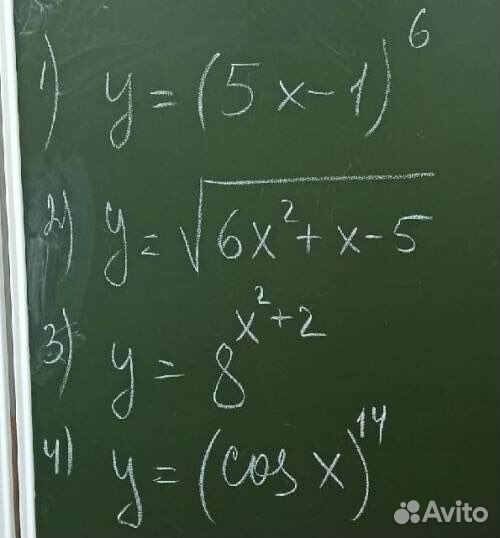 1) y = (5x - 1)^6
2) y = √(6x² + x - 5)
3) y = 8^(x² + 2)
4) y = (cos x)^14
Avito